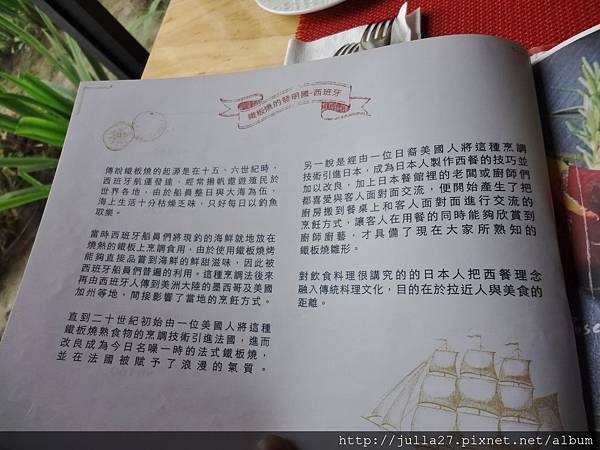 鐵板燒的發明國-西班牙
傳說鐵板燒的起源是在十五、六世紀時，
西班牙航運發達，經常揚帆遨遊殖民於
世界各地，由於船員整日與大海為伍，
海上生活十分枯燥乏味，只好每日以釣魚
取樂。
當時西班牙船員們將現釣的海鮮就地放在
燒熱的鐵板上烹調食用，由於使用鐵板燒烤
能夠直接品嘗到海鮮的鮮甜滋味，因此被
西班牙船員們普遍的利用。這種烹調法後來
再由西班牙人傳到美洲大陸的墨西哥及美國
加州等地，間接影響了當地的烹飪方式。
直到二十世紀初始由一位美國人將這種
鐵板燒熟食物的烹調技術引進法國，進而
改良成為今日名噪一時的法式鐵板燒，
並在法國被賦予了浪漫的氣質。
另一說是經由一位日裔美國人將這種烹調
技術引進日本，成為日本人製作西餐的技巧並
加以改良，加上日本餐館裡的老闆或廚師們
都喜愛與客人面對面交流，便開始產生了把
廚房搬到餐桌上和客人面對面進行交流的
烹飪方式，讓客人在用餐的同時能夠欣賞到
廚師廚藝，才具備了現在大家所熟知的
鐵板燒雛形。
對飲食料理很講究的的日本人把西餐理念
融入傳統料理文化，目的在於拉近人與美食的
距離。
http://julla27.pixnet.net/album